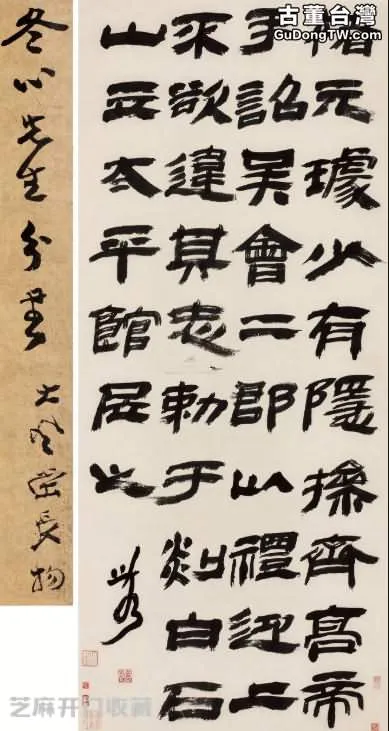 古董台灣
GuDongTW.com
褚元璩少有隱操齊高帝
手詔吳會二郡以禮迎上
不欲違其志勅于剡白石
山立太平館居之
冬心先生分書
大風堂長物
芝麻开门收藏